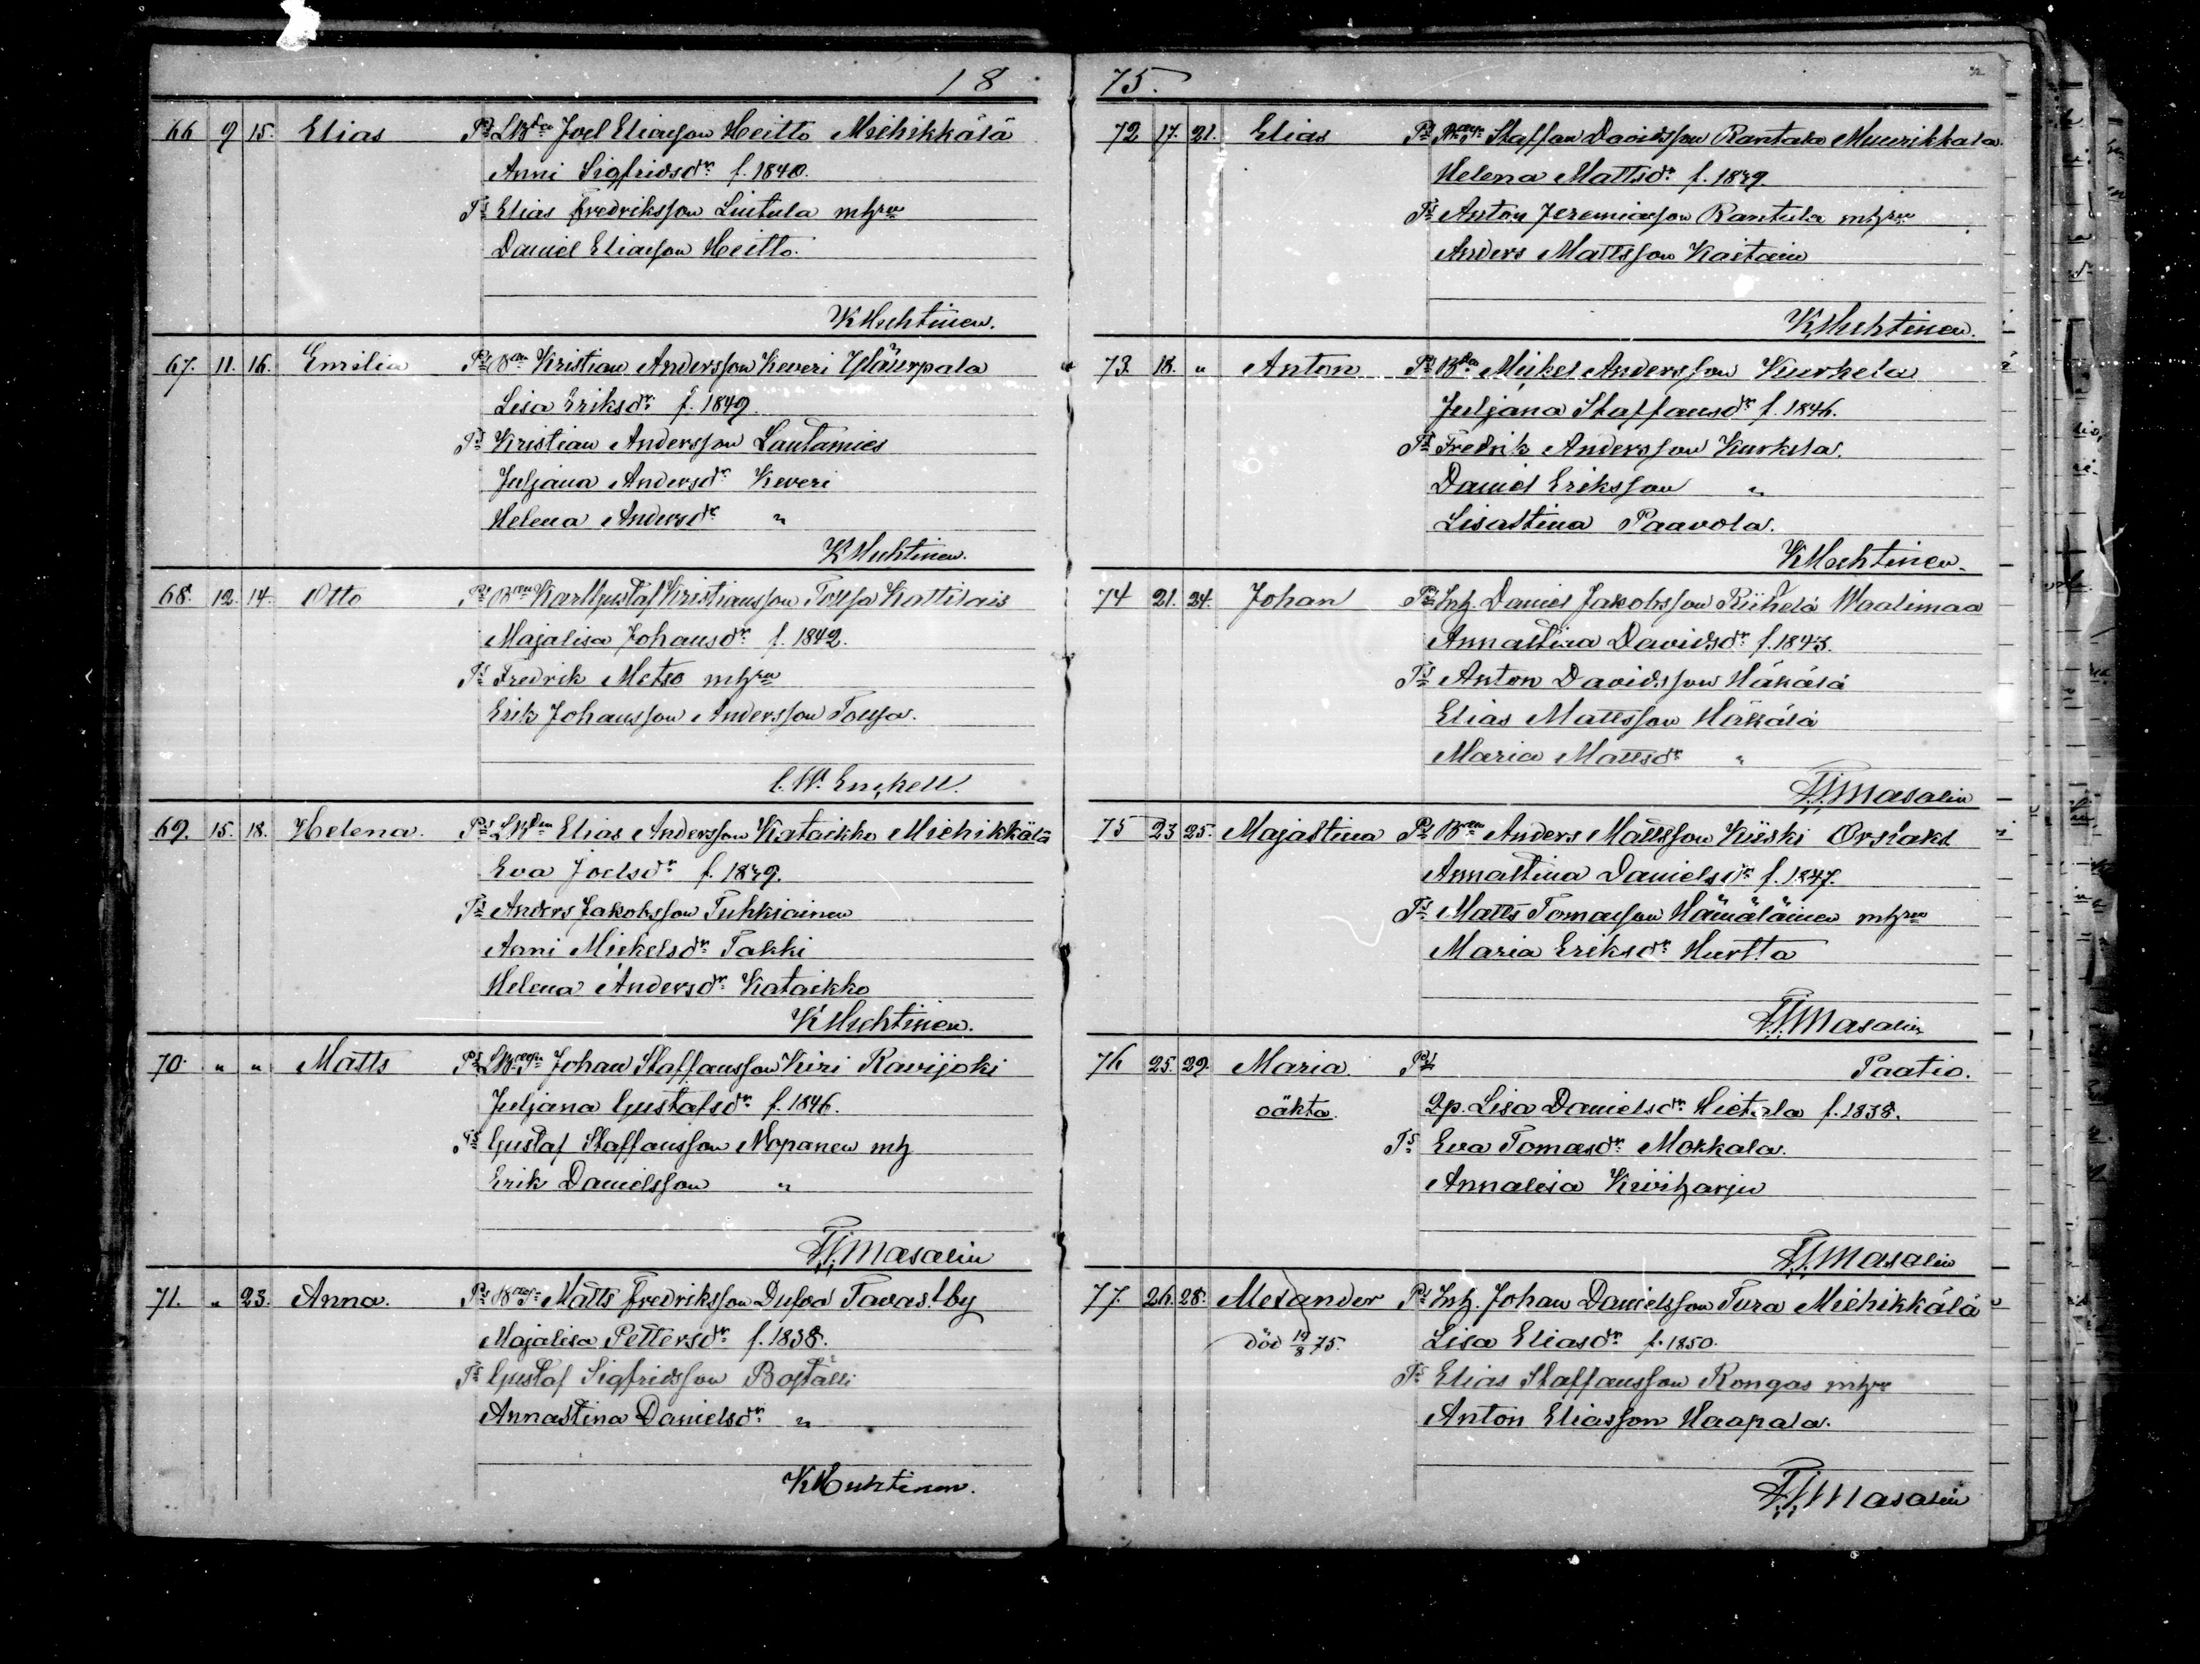 18
66 9 15. Elias Ps LBdn Joel Eliasson Heitto Miehikkälä
Anni Sigfridsdr f. 1840.
Ts Elias Fredriksson Liutula mhru
Daniel Eliasson Heitto.
K Huhtinen.
67. 11. 16. Emilia Ps Bdn Kristian Andersson Keveri Yläurpala
Lisa Eriksdr f. 1849.
Ts Kristian Andersson Lautamies
Juljana Andersdr Keveri
Helena Andersdr "
K Huhtinen.
68. 12. 14. Otto Ps Bdn Karl Gustaf Kristiansson Kattilais
Majalisa Johansdr f. 1842.
Ts Fredrik Metso mhru
Erik Johansson Andersson
69. 15. 18. Helena. Ps LBdn Elias Andersson Kataikko Miehikkälä
Eva Joelsdr f. 1849.
Ts Anders Jakobsson Tuhkiainen
Anni Mickelsdr Takki
Helena Andersdr Kataikko
K Huhtinen.
70. " " Matts Ps Johan Staffansson Kiri Ravijoki
Juljana Gustafsdr f. 1846.
Ts Gustaf Staffansson Nopanen mh
Erik Danielsson "
Masalin
71. " 23. Anna. Ps Matts Fredriksson Dufva Tavastby
Majalisa Pettersdr f. 1838.
Ts Gustaf Sigfridsson
Annastina Danielsdr "
K Huhtinen.
75.
72 17. 21. Elias Ps Staffan Davidsson Rantala Muurikkala.
Helena Mattsdr f. 1849.
Ts Anton Jeremiasson Rantala mhru
Anders Mattsson Kaitain
K Huhtinen.
73. 18. " Anton Ps Bdn Mickel Andersson Kurkela
Juljana Staffansdr f. 1846.
Ts Fredrik Andersson Kurkela.
Daniel Eriksson "
Lisastina Paavola.
K Huhtinen.
74 21. 24. Johan Ps Inh. Daniel Jakobsson Riihelä Waalimaa
Annastina Davidsdr f. 1843.
Ts Anton Davidsson Häkälä
Elias Mattsson Häkälä
Maria Mattsdr "
Masalin
75 23 25. Majastina Ps Bdn Anders Mattsson Kiiski Orslaks
Annastina Danielsdr f. 1847.
Ts Matts Tomasson Hämäläinen mhru
Maria Eriksdr Hurtta
Masalin
76 25. 29. Maria. Ps Paatio.
oäkta. Qp. Lisa Danielsdr Hietala f. 1838.
Ts Eva Tomasdr Mokkala.
Annalisa Kiviharju
Masalin
77. 26. 28. Alexander Ps Inh. Johan Danielsson Tura Miehikkälä
död 19/8 75. Lisa Eliasdr f. 1850.
Ts Elias Staffansson Rongas mhru
Anton Eliasson Haapala.
Masalin